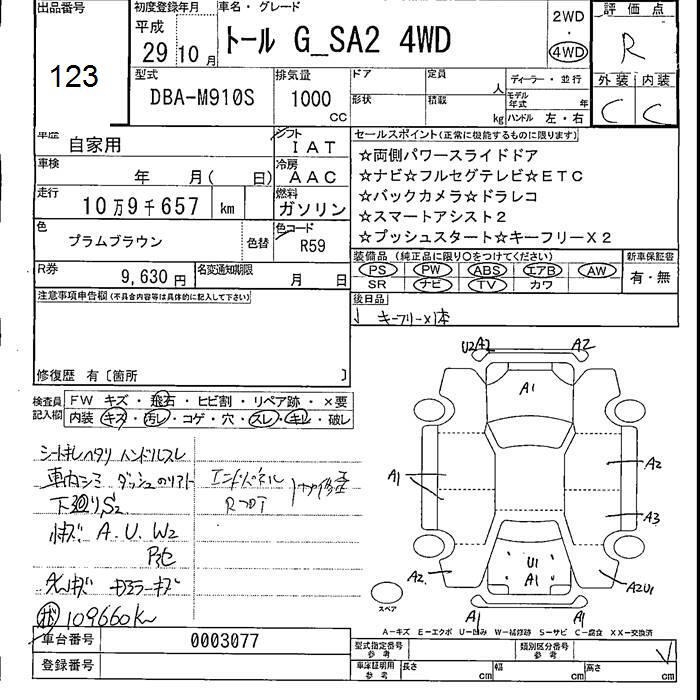 出品番号
123
初度登録年月
平成
29 10 月
車名・グレード
トール G_SA2 4WD
2WD
・
4WD
評価点
R
外装 内装
C C
型式
DBA-M910S
排気量
1000
CC
ドア
定員
人
形状
積載
kg
ディーラー・並行
モデル年式 年
ハンドル 左・右
車歴
自家用
シフト
IAT
車検
年 月( 日)
冷房
AAC
走行
10万9千657 km
燃料
ガソリン
色
プラムブラウン
色替
色コード
R59
R券
9,630 円
名変通知期限
月 日
セールスポイント(正常に機能するものに限ります)
☆両側パワースライドドア
☆ナビ☆フルセグテレビ☆ETC
☆バックカメラ☆ドラレコ
☆スマートアシスト2
☆プッシュスタート☆キーフリーX2
装備品 (純正品に限り〇をつけてください)
PS PW ABS エアB AW
SR ナビ TV カワ
新車保証書
有・無
後日品
キーフリー×1本
注意事項申告欄(不具合内容等は具体的に記入して下さい)
修復歴 有〔箇所 〕
検査員記入欄
FW キズ・飛石・ヒビ割・リペア跡・×要
内装・キズ・汚レ・コゲ・穴・スレ・キレ・破レ
シート
ハンドルスレ
車内シミ
下廻りS2
A.U.W2
109660K
U2 A2 A2
A1
A1
A2
A3
U1
A1
A2
A2U1
A1 A1
スペア
A-キズ E-エクボ U-凹み W-補修跡 S-サビ C-腐食 XX-交換済
車台番号
0003077
登録番号
型式指定番号
参考
類別区分番号
参考
車庫証明用
参考
長さ cm
幅 cm
高さ cm